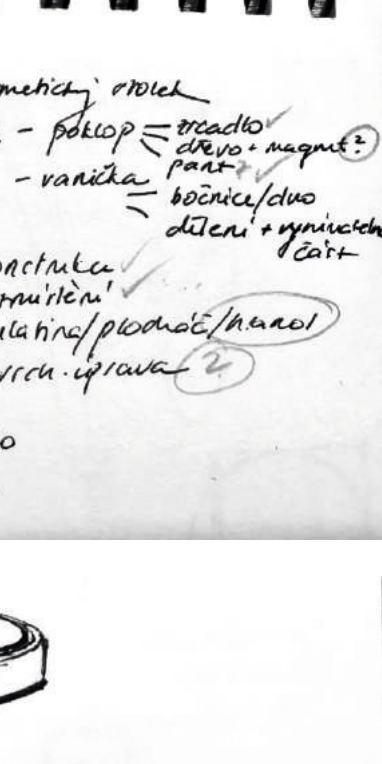 metický stolek
- poklop = zrcadlo
dřevo + magnet ?
pant ?
- vanička
bočnice/dno
dělení + vyjímatelná
část
onstrukce
ulatina/plocháč/
vrch. úprava ?
o